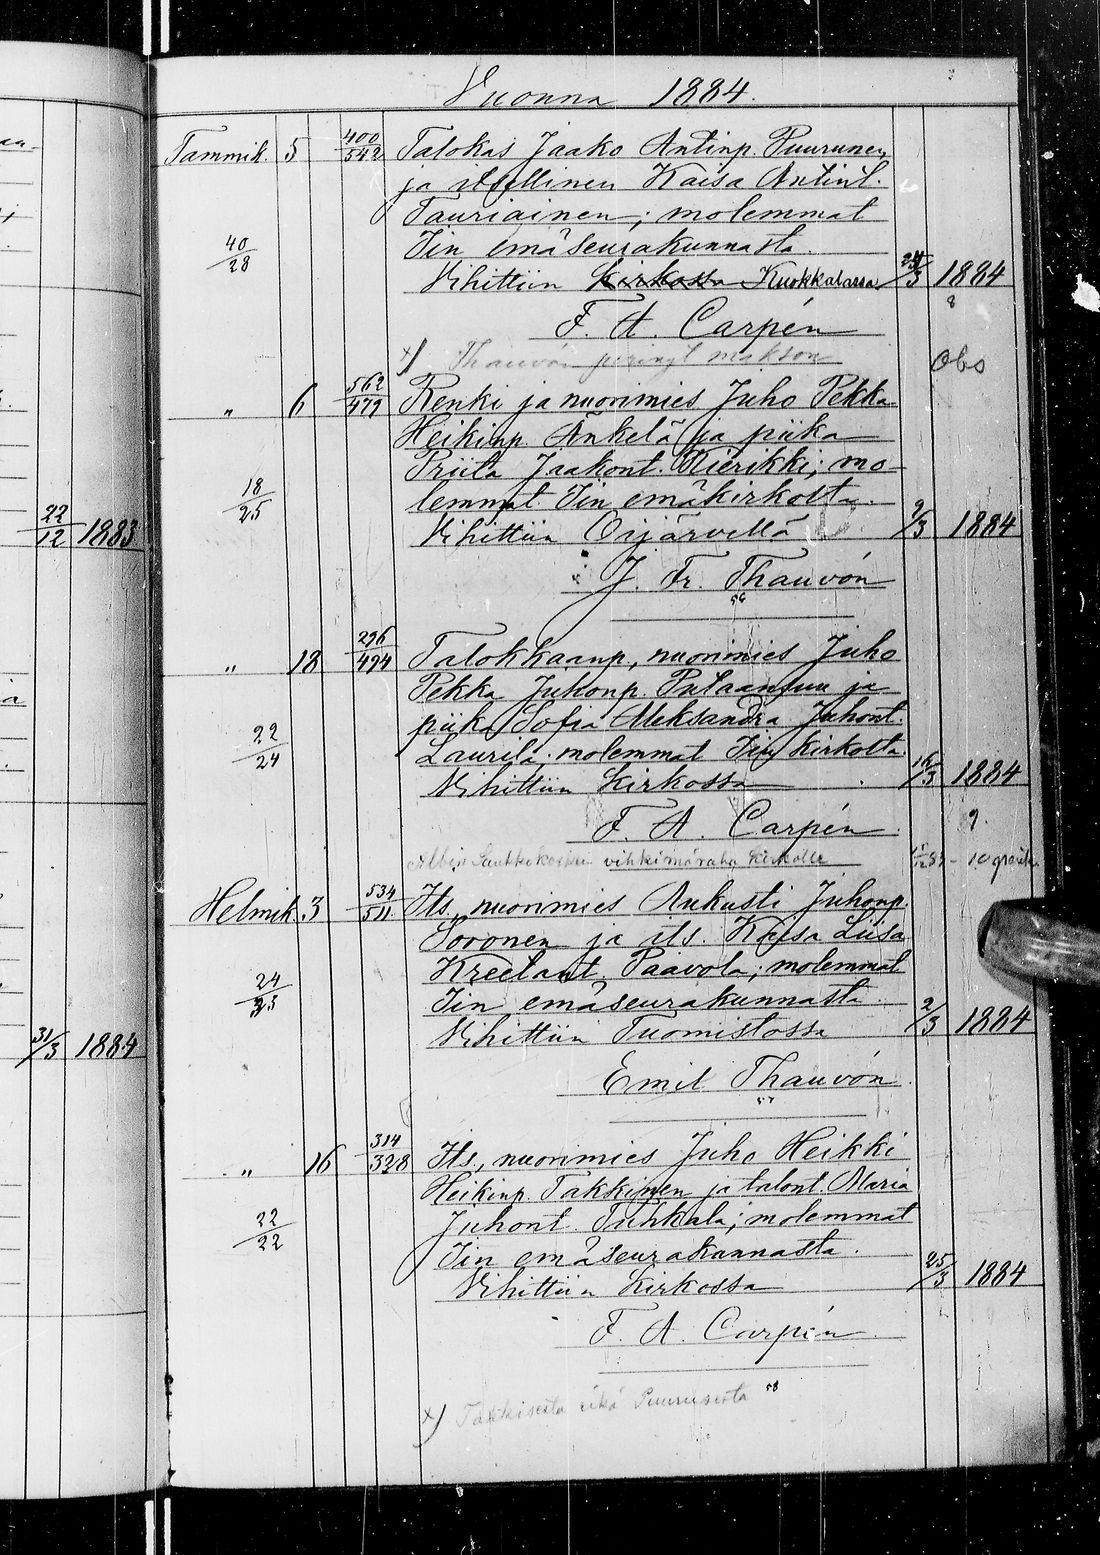 Vuonna 1884.
Tammik. 5 400/542 Talokas Jaako Antinp. Puurunen,
ja itsellinen Kaisa Antint.
Tauriainen; molemmat
40/28 Iin emäseurakunnasta.
Vihittiin Kirkossa Kuokkalassa 1884
8
F. A. Carpén
x) Thauvón makson Obs
" 6 562/479 Renki ja nuorimies Juho Pekka
Heikinp. Änkelä ja piika
Priita Jaakont. Kierikki; mo-
18/25 lemmat Iin emäkirkolta.
22/12 1883 Vihittiin Oijärvellä 2/3 1884
J. Fr. Thauvón
56
" 18 296/494 Talokkaanp., nuorimies Juho
Pekka Juhonp. Pulaantuu ja
piika Sofia Aleksandra Juhont.
22/24 Laurila; molemmat Iin kirkolta.
Vihittiin Kirkossa 16/3 1884
F. A. Carpén 9.
vihkimäraha kirkolle
Helmik. 3 534/511 Its., nuorimies Aukusti Juhonp.
Soronen ja its. Kaisa Liisa
Kreetant. Paavola; molemmat
24/23 Iin emäseurakunnasta.
31/3 1884 Vihittiin Tuomistossa 2/3 1884
Emil Thauvón
57
" 16 314/328 Its., nuorimies Juho Heikki
Heikinp. Takkinen ja talont. Maria
22/22 Juhont. Tuhkala; molemmat
Iin emäseurakunnasta.
Vihittiin Kirkossa 25/3 1884
F. A. Carpén
58
x) Takkisesta eikä Puurusesta